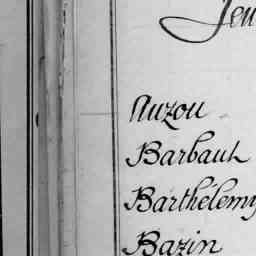 Auzou
Barbault
Barthélemy
Bazin